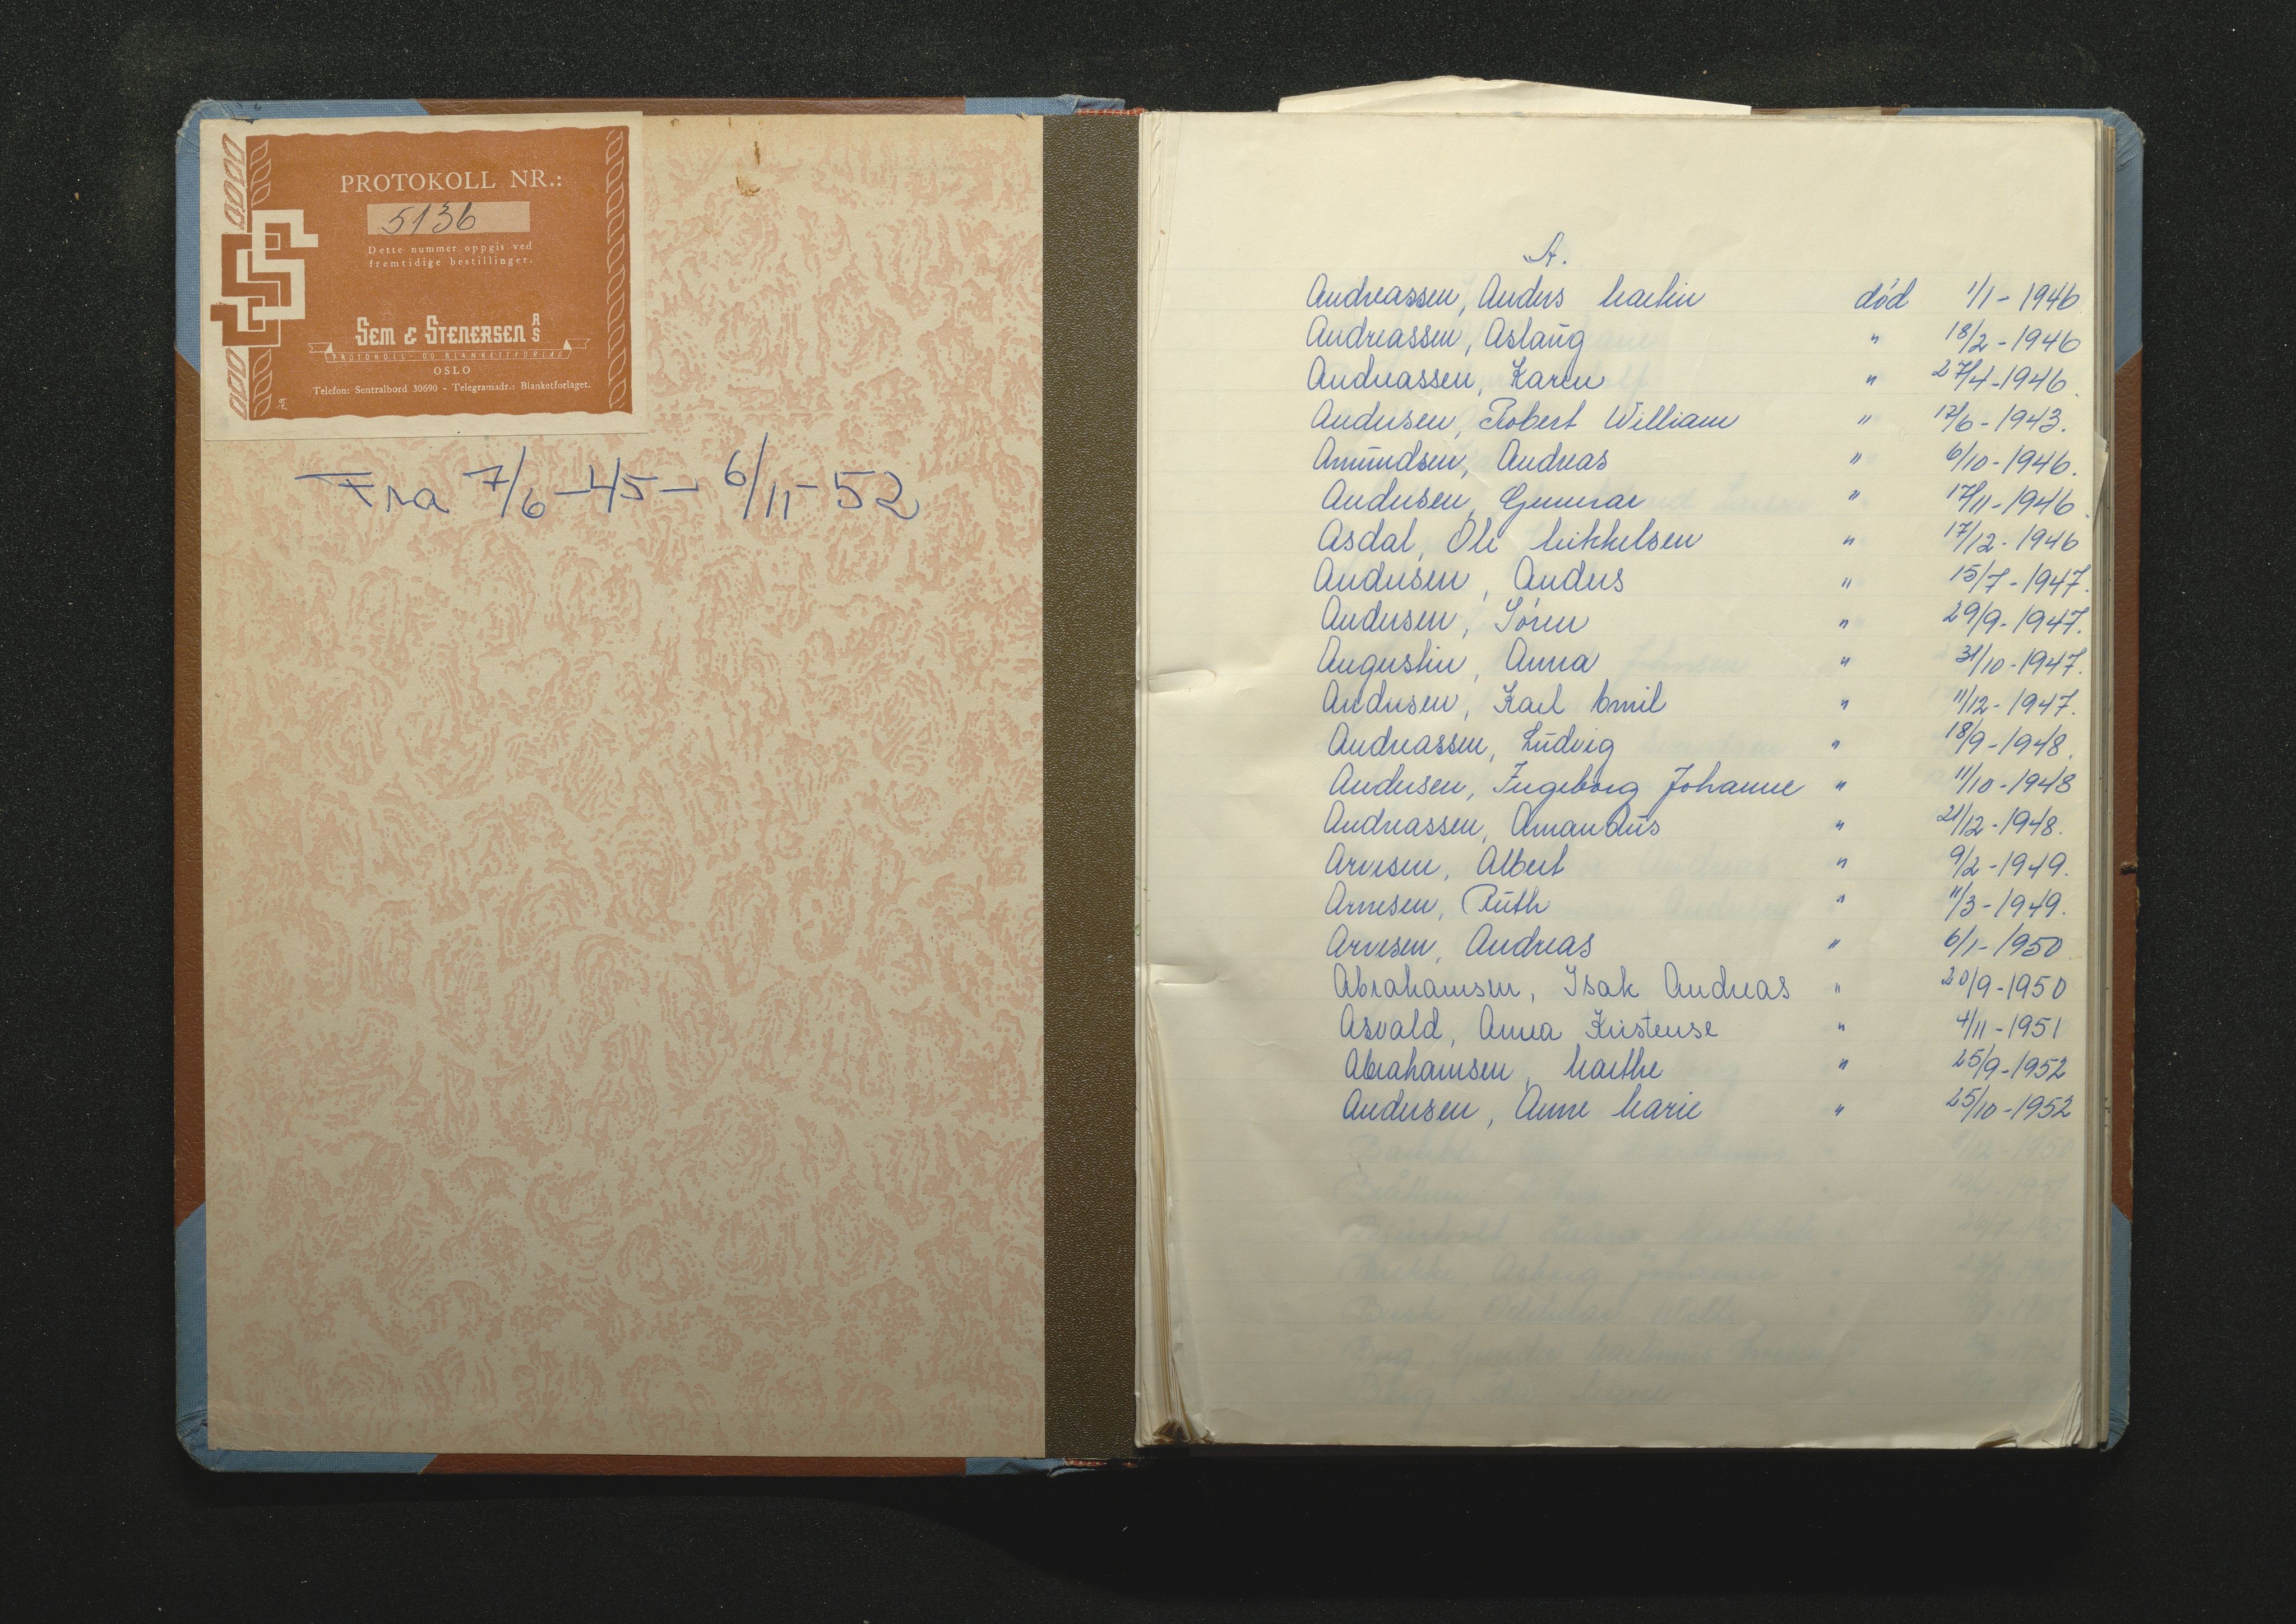 PROTOKOLL NR.:
5136
Dette nummer oppgis ved
fremtidige bestillinger.
SEM & STENERSEN A/S
PROTOKOLL- OG BLANKETTFORLAG
OSLO
Telefon: Sentralbord 30690 - Telegramadr.: Blanketforlaget.
Fra 7/6-45- 6/11-52
A.
Andreassen, Anders Martin død 1/1-1946
Andreassen, Aslaug " 18/2-1946
Andreassen, Karen " 27/4-1946.
Andersen, Robert William " 17/6-1943.
Amundsen, Andreas " 6/10-1946.
Andersen, Gunnar " 17/11-1946.
Asdal, Ole Mikkelsen " 17/12-1946
Andersen, Anders " 15/7-1947.
Andersen, Søren " 29/9-1947.
Augustin, Anna " 31/10-1947.
Andersen, Karl Emil " 11/12-1947.
Andreassen, Ludvig " 18/9-1948.
Andersen, Ingeborg Johanne " 11/10-1948
Andreassen, Amandus " 21/12-1948.
Arvesen, Albert " 9/2-1949.
Arnesen, Ruth " 11/3-1949.
Arvesen, Andreas " 6/1-1950
Abrahamsen, Isak Andreas " 20/9-1950
Asvald, Anna Kristense " 4/11-1951
Abrahamsen, Marthe " 25/9-1952
Andersen, Anne Marie " 25/10-1952